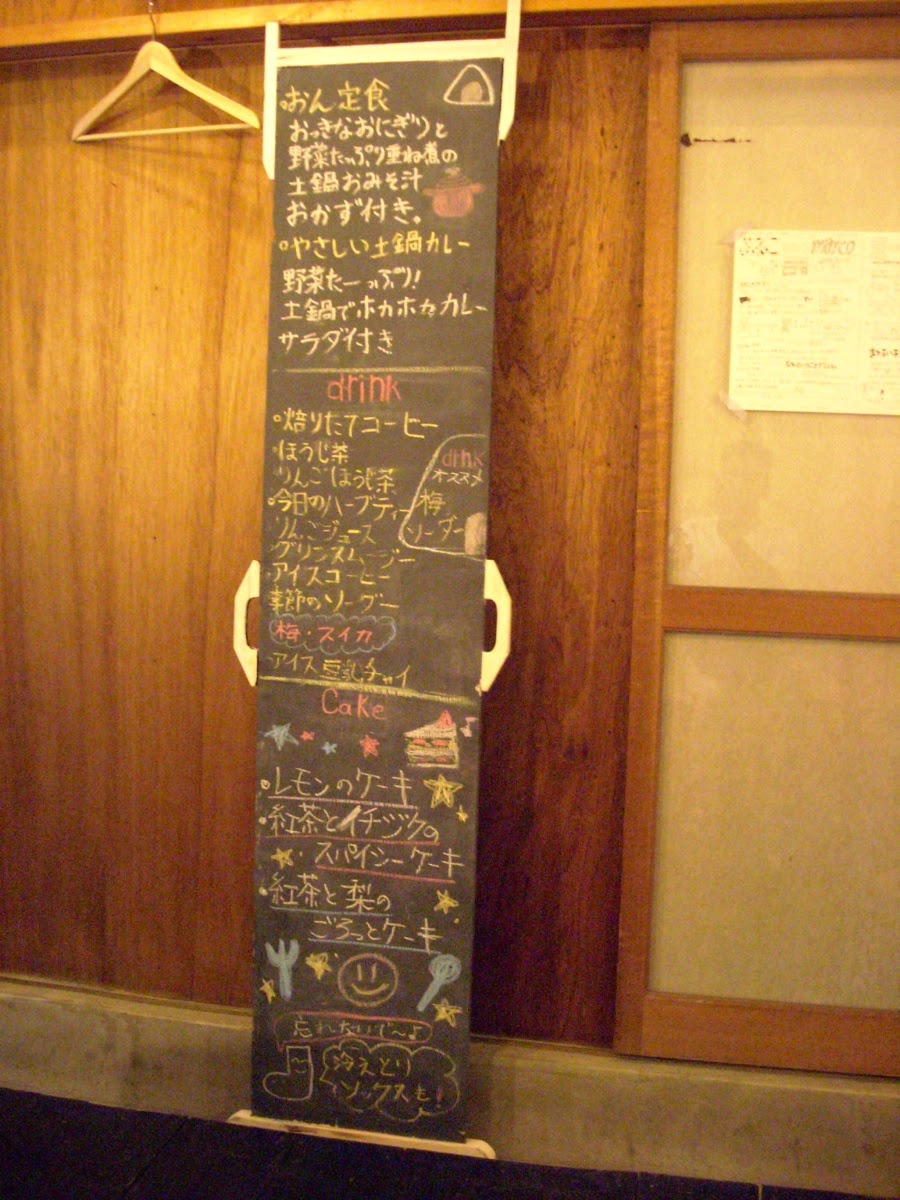 ・おん定食
おっきなおにぎりと
野菜たっぷり重ね煮の
土鍋おみそ汁
おかず付き。
・やさしい土鍋カレー
野菜たーっぷり!
土鍋でホカホカカレー
サラダ付き
drink
・焙りたてコーヒー
・ほうじ茶
りんごほうじ茶
・今日のハーブティー
りんごジュース
グリンスムージー
・アイスコーヒー
季節のソーダー
梅・スイカ
アイス豆乳チャイ
drink
オススメ
梅
ソーダー
Cake
・レモンのケーキ
・紅茶とイチヂクの
スパイシーケーキ
・紅茶と梨の
ごろっとケーキ
忘れないで〜♪
冷えとり
ソックスも!
marco